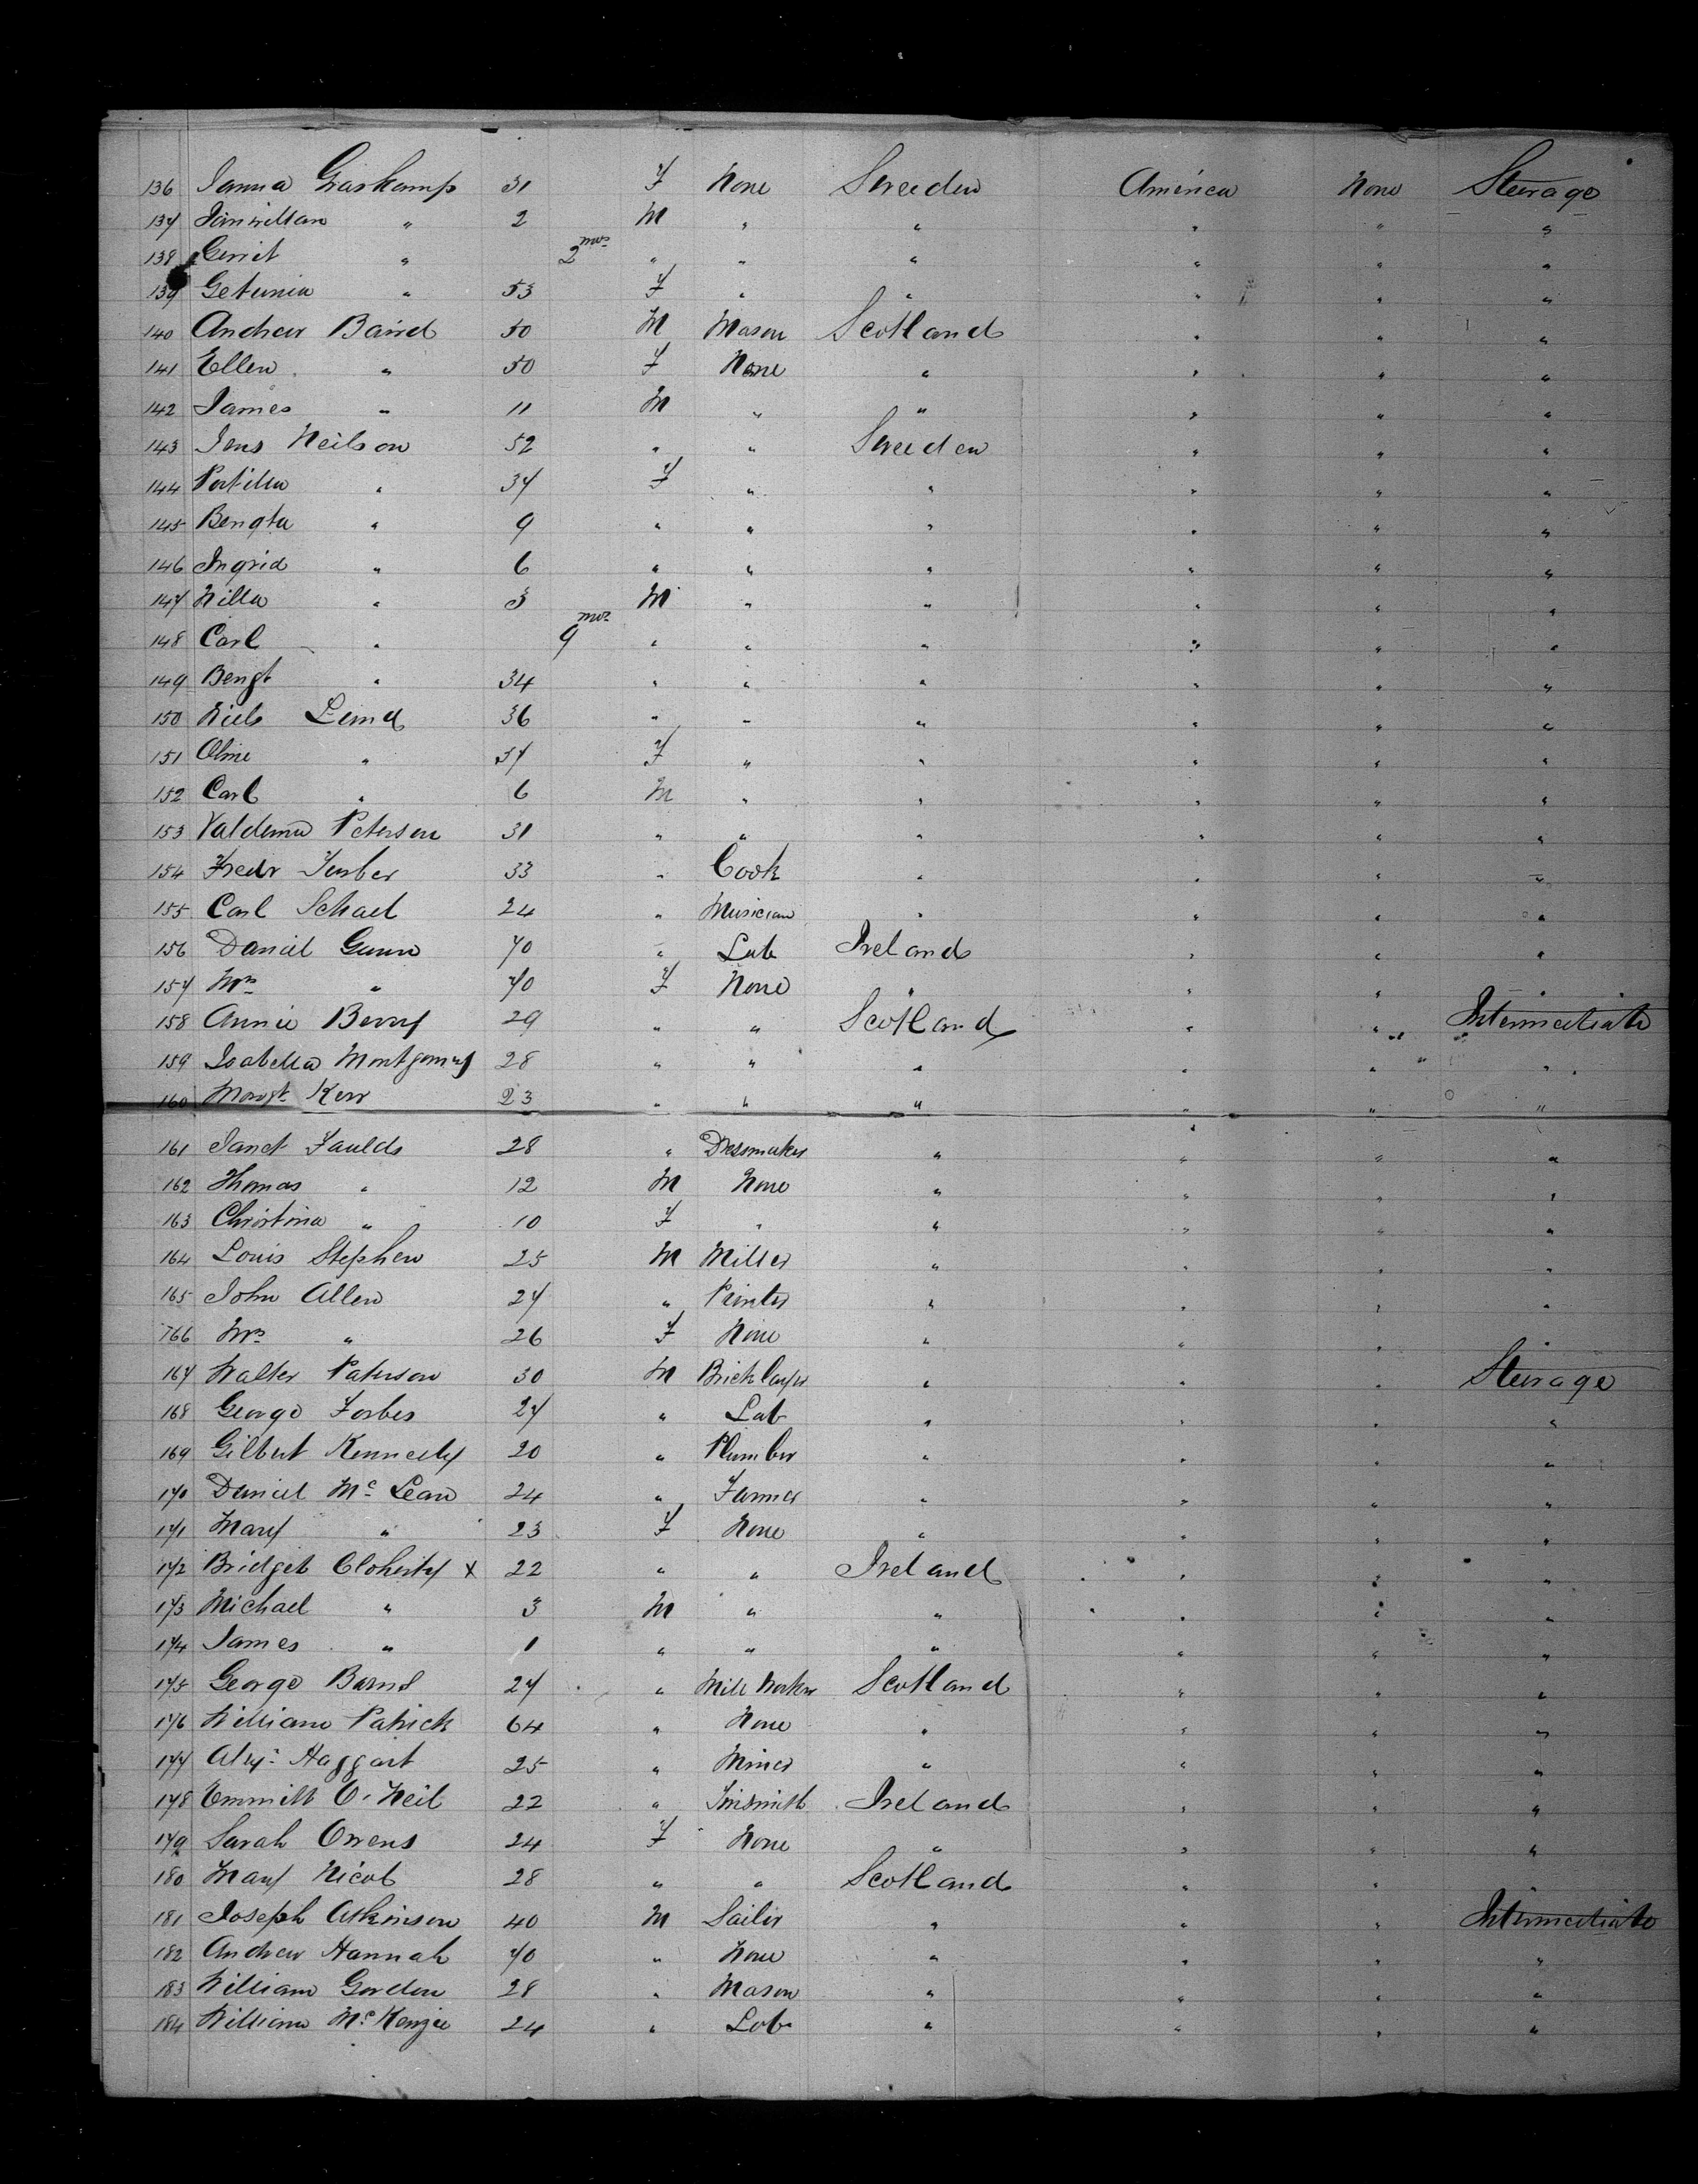 136 Janna Graskamp 31 F None Sweeden America None Steerage
137 Janwillan " 2 M " " " " "
138 Gerrit " 2 mos " " " " " "
139 Getunia " 53 F " " " " "
140 Andrew Baird 50 M Mason Scotland " " "
141 Ellen " 50 F None " " " "
142 James " 11 M " " " " "
143 Jens Neilson 52 " " Sweeden " " "
144 " 37 F " " " " "
145 Bengta " 9 " " " " " "
146 Ingrid " 6 " " " " " "
147 Nilla " 3 M " " " " "
148 Carl " 9 mos " " " " " "
149 Bengt " 34 " " " " " "
150 Niels 36 " " " " " "
151 Oline " 37 F " " " " "
152 Carl " 6 M " " " " "
153 Valdema Peterson 31 " " " " " "
154 Fredr 33 " Cook " " " "
155 Carl Schael 24 " Musician " " " "
156 Daniel Gunn 70 " Lab Ireland " " "
157 Mrs " 70 F None " " " "
158 Annie Berry 29 " " Scotland " " Intermediate
159 Isabella Montgomery 28 " " " " " "
160 Margt Kerr 23 " " " " " "
161 Janet Faulds 28 " Dressmaker " " " "
162 Thomas " 12 M None " " " "
163 Christina " 10 F " " " " "
164 Louis Stephen 25 M Miller " " " "
165 John Allen 27 " Printer " " " "
166 Mrs " 26 F None " " " "
167 Walter Paterson 30 M Bricklayer " " " Steerage
168 George Forbes 27 " Lab " " " "
169 Gilbert Kennedy 20 " Plumber " " " "
170 Daniel Mc Lean 24 " Farmer " " " "
171 Mary " 23 F None " " " "
172 Bridget Cloherty x 22 " " Ireland " " "
173 Michael " 3 M " " " " "
174 James " 1 " " " " " "
175 George Barns 27 " Mill Worker Scotland " " "
176 William Patrick 64 " None " " " "
177 Alexr Haggart 25 " Miner " " " "
178 Emmitt O'Neil 22 " Tinsmith Ireland " " "
179 Sarah Owens 24 F None " " " "
180 Mary Nicol 28 " " Scotland " " "
181 Joseph Atkinson 40 M Sailor " " " Intermediate
182 Andrew Hannah 70 " None " " " "
183 William Gordon 28 " Mason " " " "
184 William McKenzie 24 " Lab " " " "